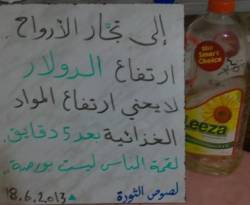 إلى تجّار الأرواح..
ارتفاع الدولار
لا يعني ارتفاع المواد
الغذائية بعد 5 دقايق.
لقمة الناس ليست بورصة..
لصوص الثورة
18.6.2013
Smart
Choice
Leeza